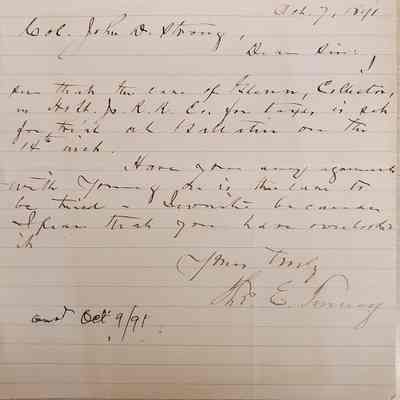 Oct. 7, 1891
Col. John D. Strong,
Dear Sir: I
see that the case of Glenn, Collector,
vs R. R. Co. for taxes is set
for trial at Gallatin on the
14th inst.
Have you any agreement
with Young or is the case to
be tried – I write because
I fear that you have overlooked
it
Yours Truly
Thos. E.
ansd Oct 9/91